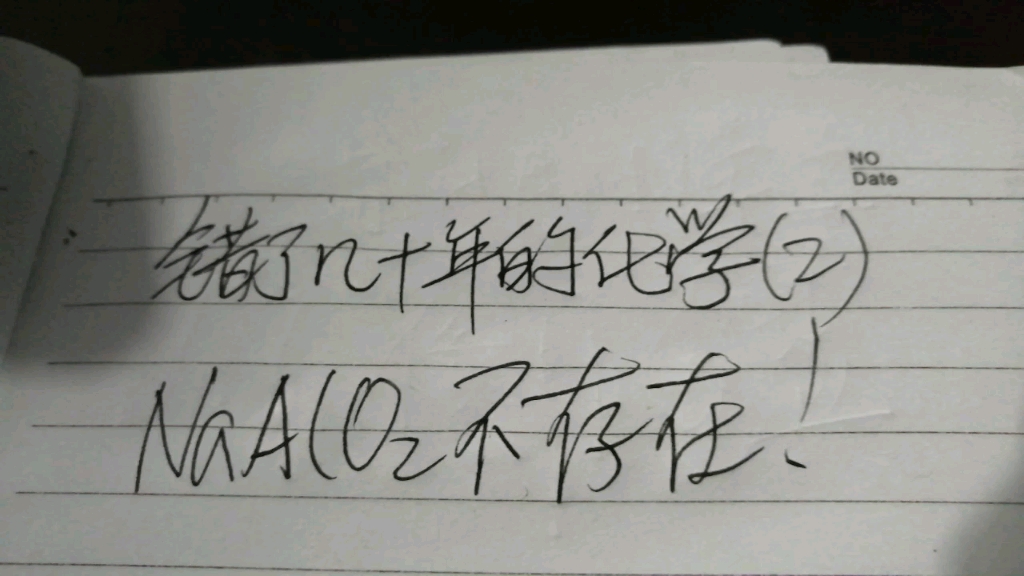 NO
Date
错了几十年的化学(2)
NaAlO₂不存在!